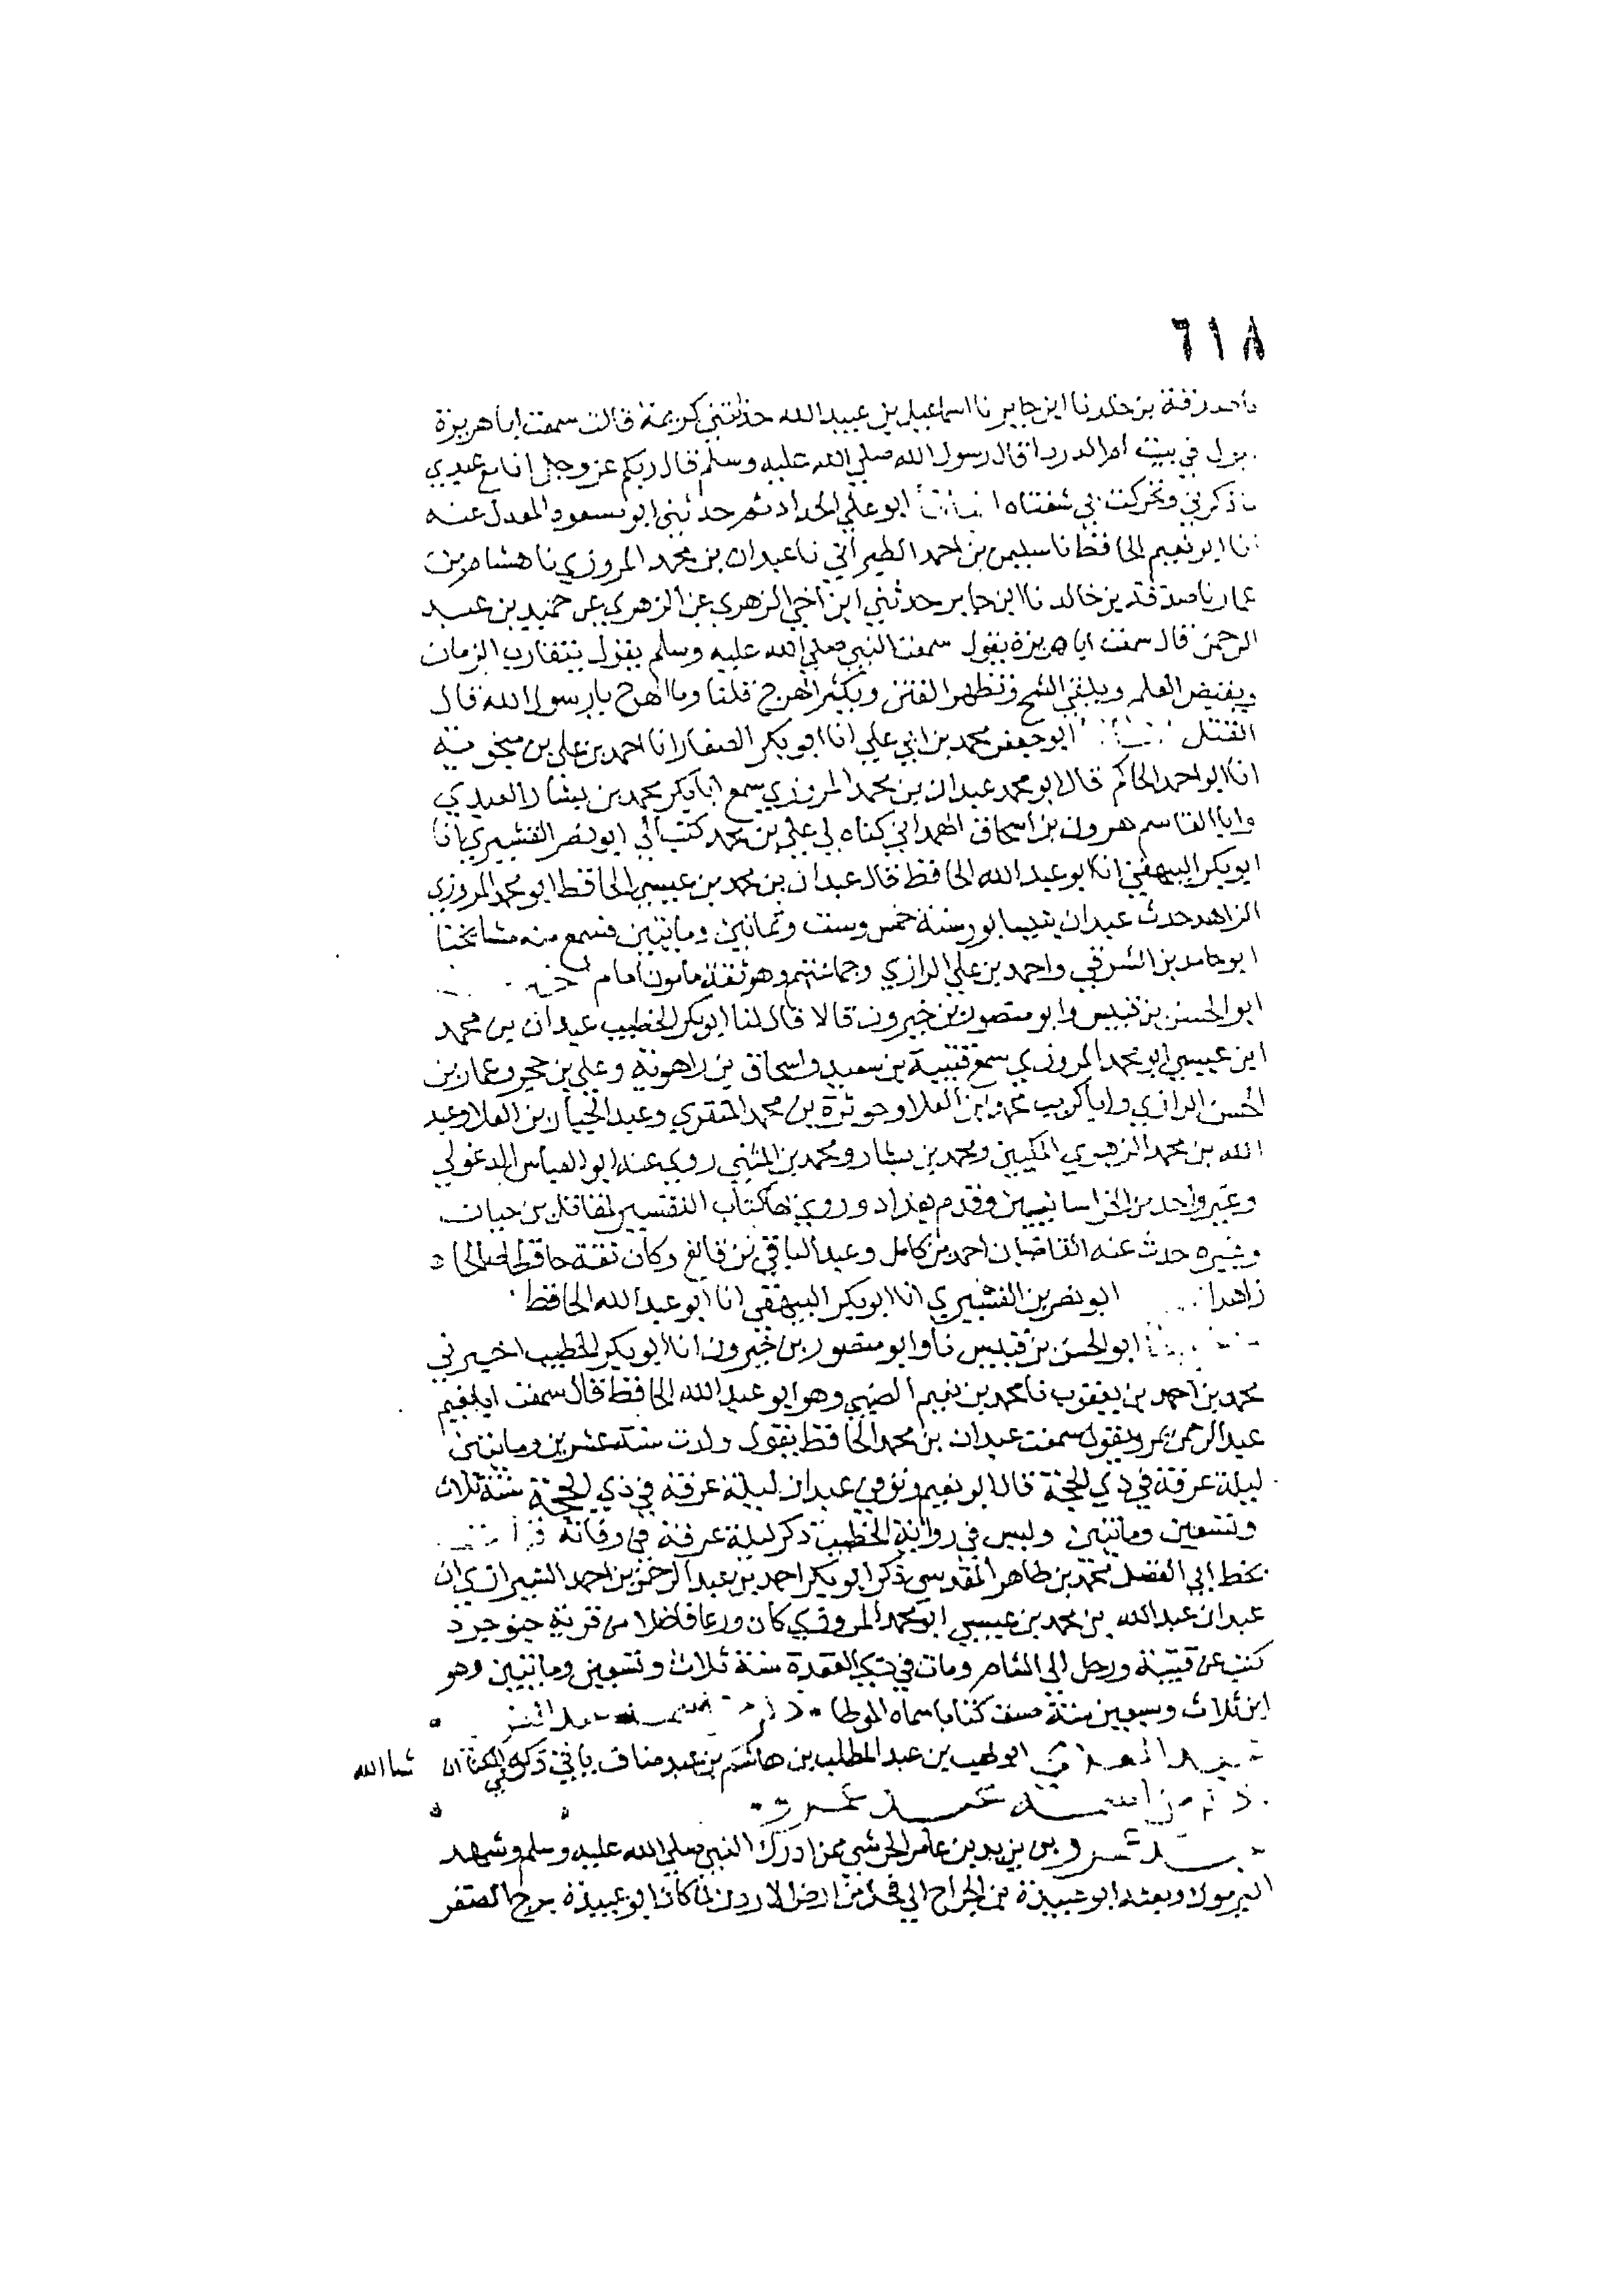 ٦١٨
صدقة بن خالد نا ابن جابر نا اسماعيل بن عبيد الله حدثتني كريمة قالت سمعت ابا هريرة
يقول في بيت ام الدردا قال رسول الله صلي الله عليه وسلم قال ربكم عز وجل انا مع عبدي
ما ذكرني وتحركت بي شفتاه ابو علي الحداد ثم حدثني ابو مسعود المعدل عنه
انا ابو نعيم الحافظ نا سليمن بن احمد الطبراني نا عبدان بن محمد المروزي نا هشام بن
عمار نا صدقة بن خالد نا ابن جابر حدثني ابن اخي الزهري عن الزهري عن حميد بن عبد
الرحمن قال سمعت ابا هريرة يقول سمعت النبي صلي الله عليه وسلم يقول يتقارب الزمان
ويقبض العلم ويلقي الشح وتظهر الفتن ويكثر الهرج قلنا وما الهرج يا رسول الله قال
القتل ابو جعفر محمد بن ابي علي انا ابو بكر الصفار انا احمد بن علي بن منجويه
انا ابو احمد الحاكم قال ابو محمد عبدان بن محمد المروزي سمع ابا بكر محمد بن بشار العبدي
وابا القاسم هرون بن اسحاق الهمداني كناه لي علي بن محمد كتب الي ابو نصر القشيري انا
ابو بكر البيهقي انا ابو عبد الله الحافظ قال عبدان بن محمد بن عيسي الحافظ ابو محمد المروزي
الزاهد حدث عبدان بنيسابور سنة خمس وست وثمانين ومايتين فسمع منه مشايخنا
ابو حامد بن الشرقي واحمد بن علي الرازي وجماعتهم وهو ثقة مامون امام
ابو الحسن بن قبيس وابو منصور بن خيرون قالا قال لنا ابو بكر الخطيب عبدان بن محمد
ابن عيسي ابو محمد المروزي سمع قتيبة بن سعيد واسحاق بن راهويه وعلي بن حجر وعمار بن
الحسن الرازي وابا كريب محمد بن العلا وحوثرة بن محمد المنقري وعبد الجبار بن العلا وعبد
الله بن محمد الزهري المكيين ومحمد بن بشار ومحمد بن المثني روي عنه ابو العباس الدغولي
وغير واحد من الخراسانيين وقدم بغداد وروي بها كتاب التفسير لمقاتل بن حيان
وغيره حدث عنه القاضيان احمد بن كامل وعبد الباقي بن قانع وكان ثقة حافظا صالحا
زاهدا ابو نصر بن القشيري انا ابو بكر البيهقي انا ابو عبد الله الحافظ
ابو الحسن بن قبيس نا وابو منصور بن خيرون انا ابو بكر الخطيب اخبرني
محمد بن احمد بن يعقوب نا محمد بن نعيم الضبي وهو ابو عبد الله الحافظ قال سمعت ابا نعيم
عبد الرحمن بمرو يقول سمعت عبدان بن محمد الحافظ يقول ولدت سنة عشرين ومايتين
ليلة عرفة في ذي الحجة قال ابو نعيم وتوفي عبدان ليلة عرفة في ذي الحجة سنة ثلاث
وتسعين ومايتين وليس في رواية الخطيب ذكر ليلة عرفة في وفاته
بخط ابي الفضل محمد بن طاهر المقدسي ذكر ابو بكر احمد بن عبد الرحمن بن احمد الشيرازي ان
عبدان عبد الله بن محمد بن عيسي ابو محمد المروزي كان ورعا فاضلا من قرية جنوجرد
كتب عن قتيبة ورحل الي الشام ومات في ذي القعدة سنة ثلاث وتسعين ومايتين وهو
ابن ثلاث وسبعين سنة صنف كتابا سماه الموطا
ابو لهب بن عبد المطلب بن هاشم بن عبد مناف ياتي ذكره في الكنا ان شا الله
ذكر من اسمه عبد عمرو
عبد عمرو بن يزيد بن عامر الجرشي ممن ادرك النبي صلي الله عليه وسلم وشهد
اليرموك وبعثه ابو عبيدة بن الجراح الي فحل من ارض الاردن لما كان ابو عبيدة بمرج الصفر